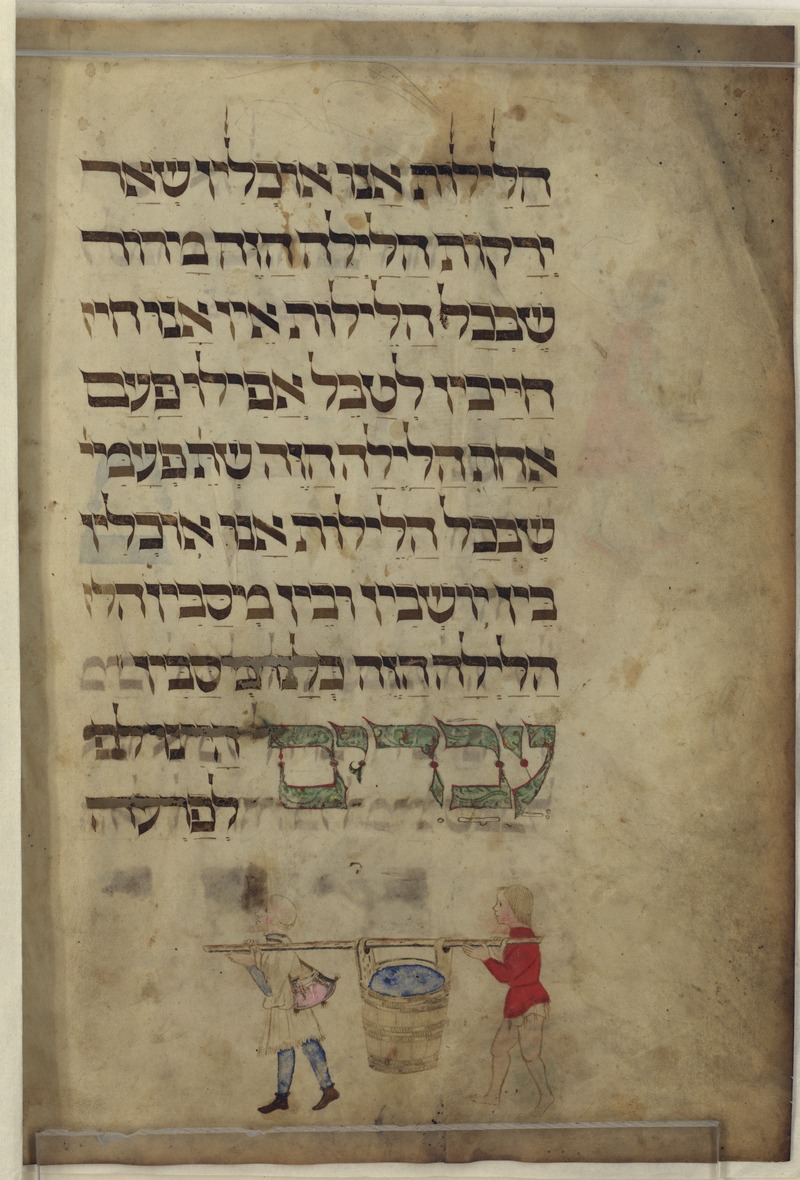 הלילות אנו אוכלין שאר
ירקות הלילה הזה מרור
שבכל הלילות אין אנו חיי
חייבין לטבל אפילו פעם
אחת הלילה הזה שת פעמי
שבכל הלילות אנו אוכלין
בין יושבין ובין מסבין הלי
הלילה הזה כלנו מסבין
עבדים היינו לפ
לפרעה